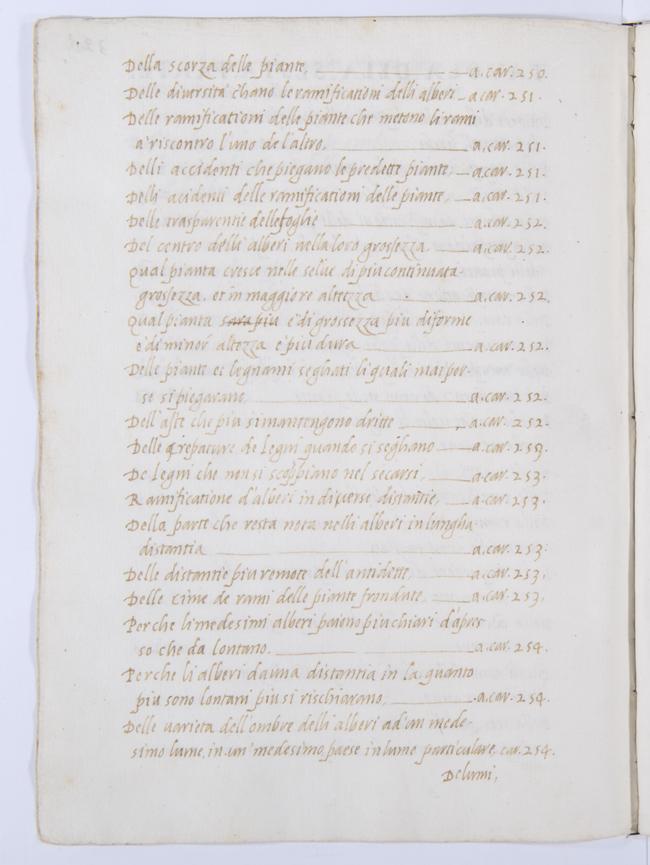 Della scorza delle piante, a. car. 250.
Delle diversita c'hano le ramificationi delli alberi a car. 251.
Delle ramificationi delle piante che metono li rami
a' riscontro l'uno de l'altro, a. car. 251.
Delli accidenti che piegano le predette piante, a. car. 251.
Delli acidenti delle ramificationi delle piante, a. car. 251.
Delle trasparentie delle foglie a. car. 252.
Del centro delli alberi nella loro grossezza a. car. 252.
Qual pianta cresce nelle selve di piu continuata
grossezza, et in maggiore altezza a. car. 252.
Qual pianta sara piu e' di grossezza piu diforme
e' di minor altezza e' piu dura a. car. 252.
Delle piante et legnami seghati li quali mai per
se si piegarano, a. car. 252.
Dell'aste che piu si mantengono dritte a. car. 252.
Delle Crepature de Legni quando si seghano a. car. 253.
De Legni che non si scoppiano nel secarsi, a. car. 253.
Ramificatione d'alberi in diverse distantie, a. car. 253.
Della parte che resta nota nelli alberi in lungha
distantia a. car. 253.
Delle distantie piu remote dell'antidette, a. car. 253.
Delle Cime de rami delle piante frondate, a. car. 253.
Perche li medesimi alberi paiono piu chiari d'apres
so che da lontano. a. car. 254.
Perche li alberi da una distantia in la quanto
piu sono lontani piu si rischiarano, a. car. 254.
Delle varieta dell'ombre delli alberi ad'un mede-
simo lume, in un' medesimo paese in lume particulare, car. 254.
De lumi,